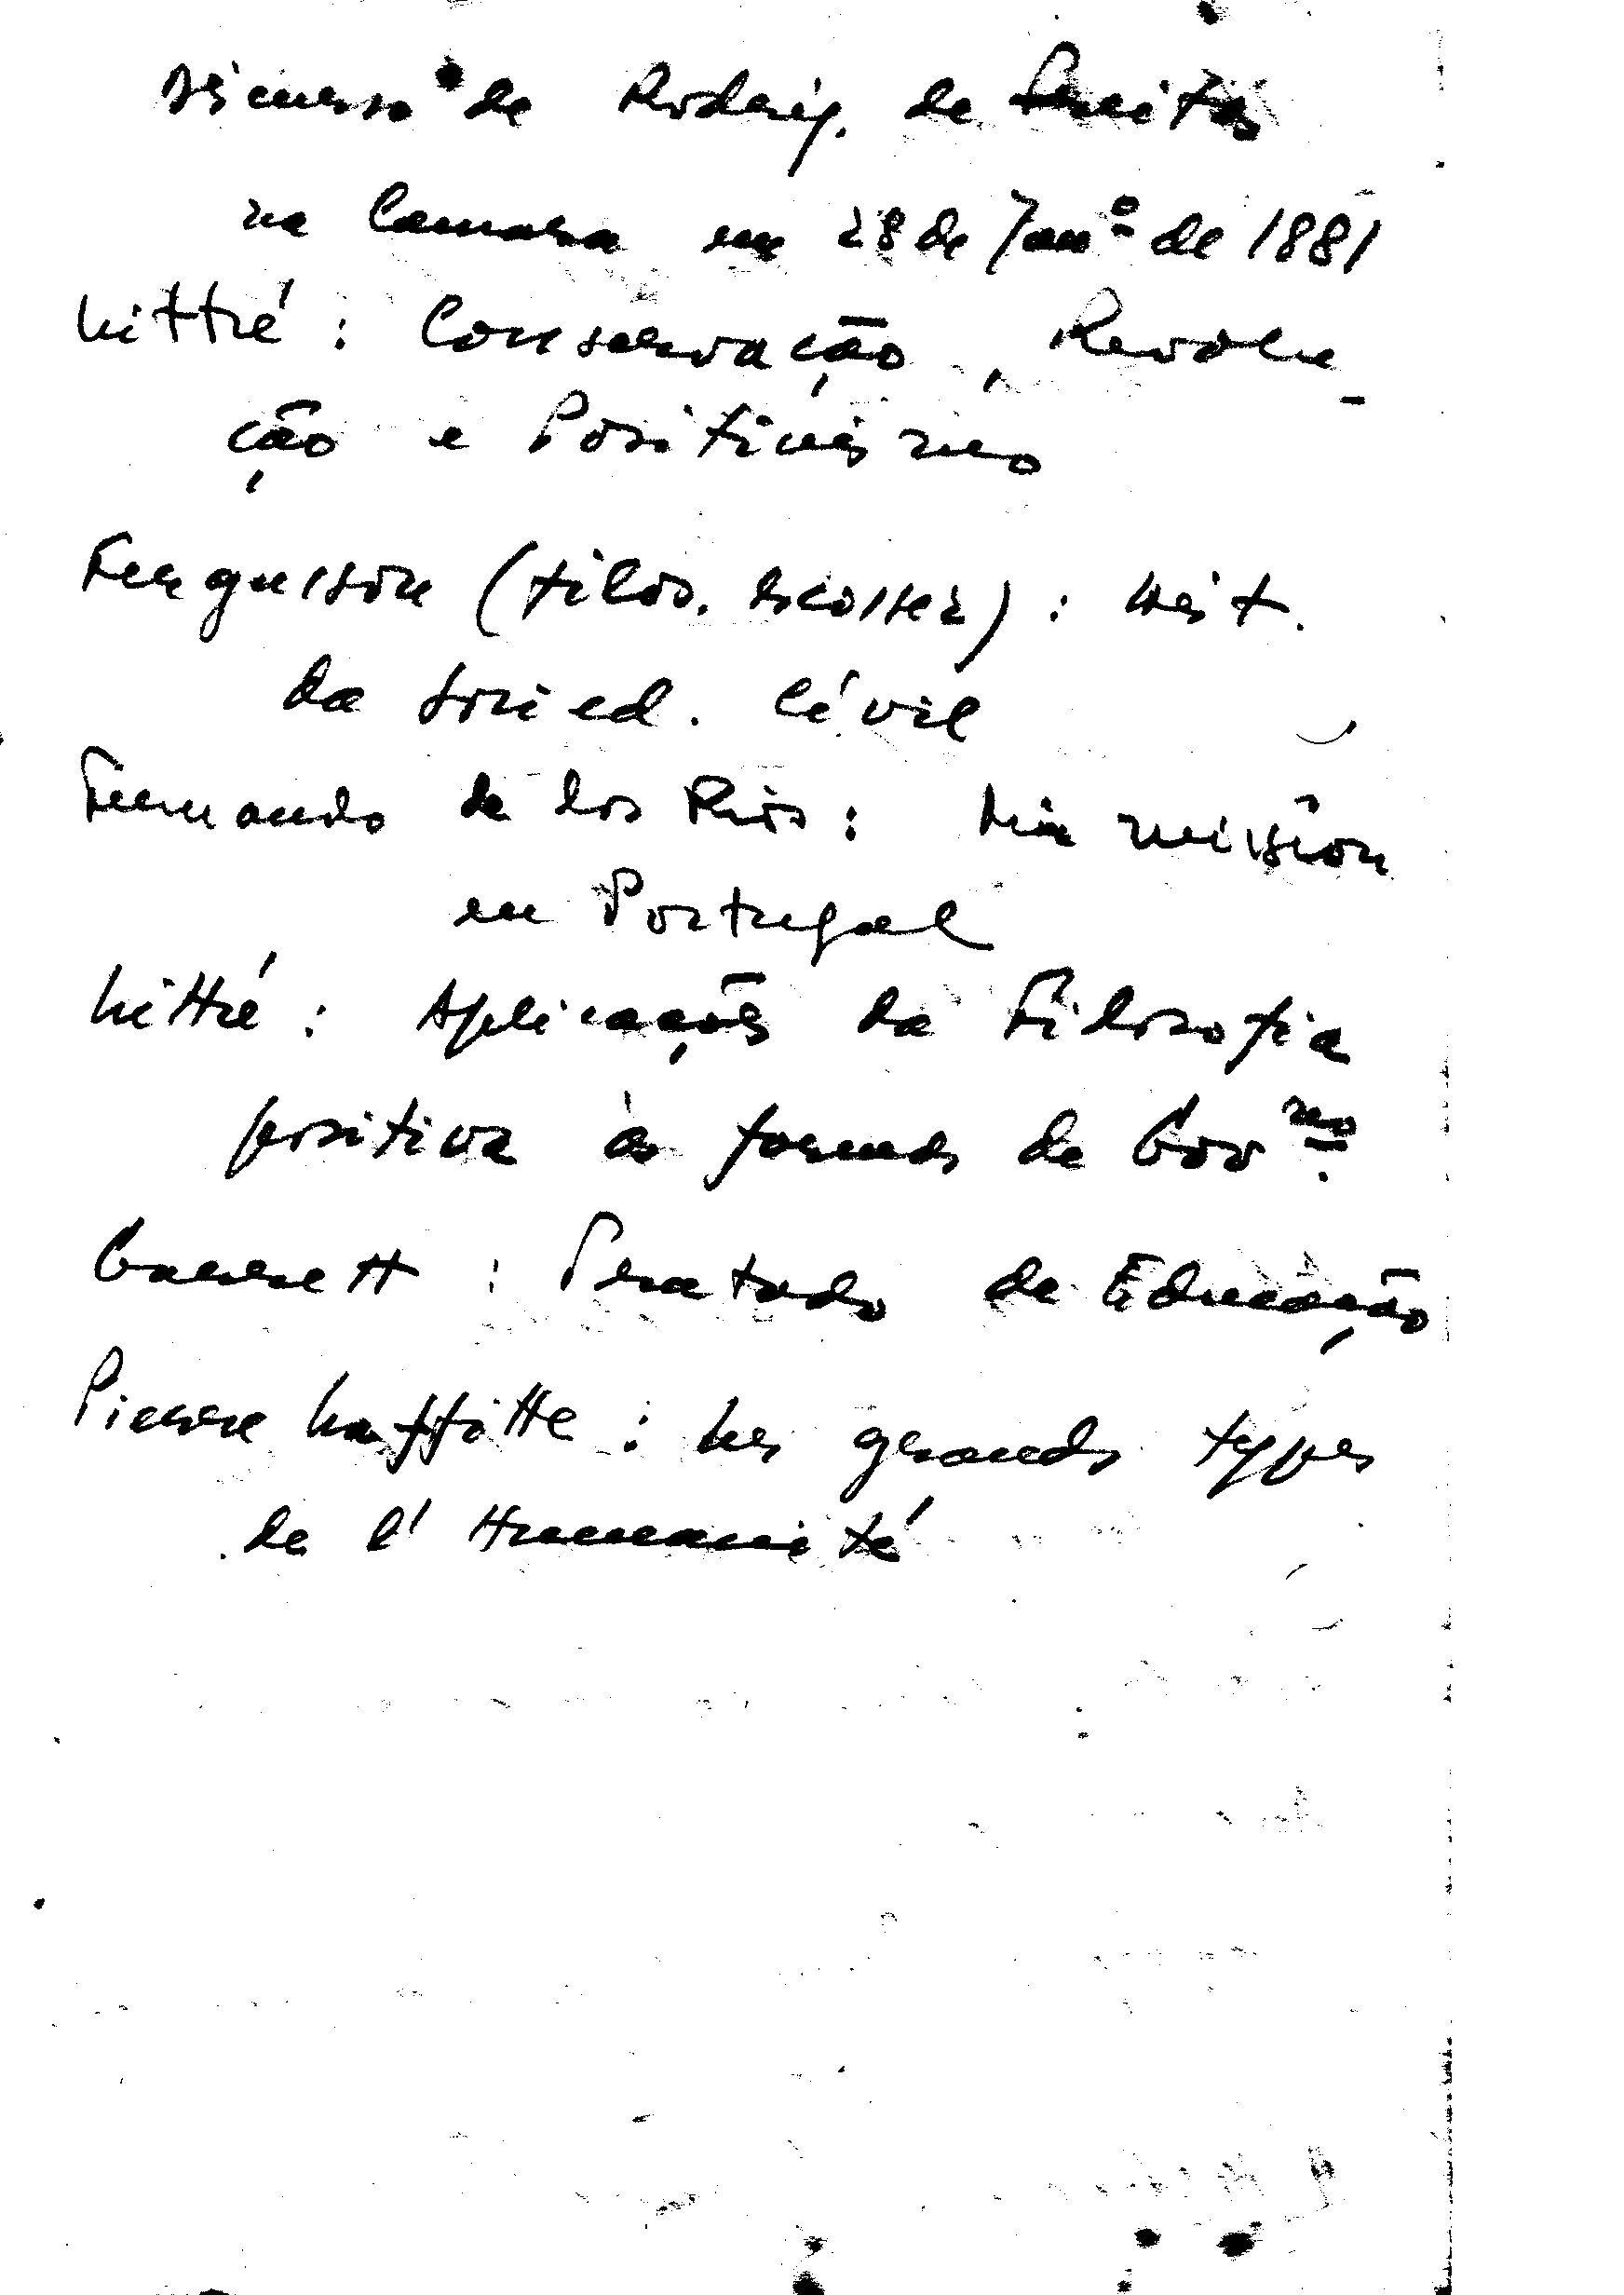 Discurso de Rodrig. de Freitas
na Camara em 28 de Jan.º de 1881
Littré : Conservação, Revolu-
ção e Positivismo
Ferguson (filos. escossez) : Hist.
da Socied. Civil
Fernando de los Rios : Mia mision
en Portugal
Littré : Aplicações da Filosofia
positiva às formas de Gov.no
Garrett : Tratado de Educação
Pierre Laffitte : Les grands types
de l'Humanité